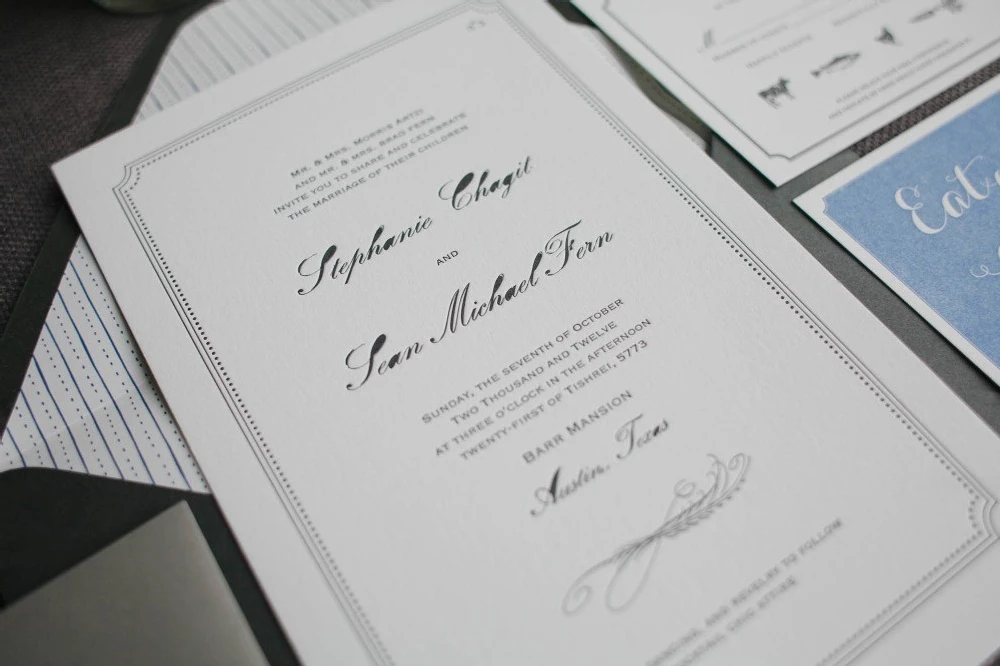 MR. & MRS. MORRIS ARTZI
AND MR. & MRS. BRAD FERN
INVITE YOU TO SHARE AND CELEBRATE
THE MARRIAGE OF THEIR CHILDREN
Stephanie Chagit
AND
Sean Michael Fern
SUNDAY, THE SEVENTH OF OCTOBER
TWO THOUSAND AND TWELVE
AT THREE O'CLOCK IN THE AFTERNOON
TWENTY-FIRST OF TISHREI, 5773
BARR MANSION
Austin, Texas
DANCING, AND REVELRY TO FOLLOW
CHIC ATTIRE
Eat